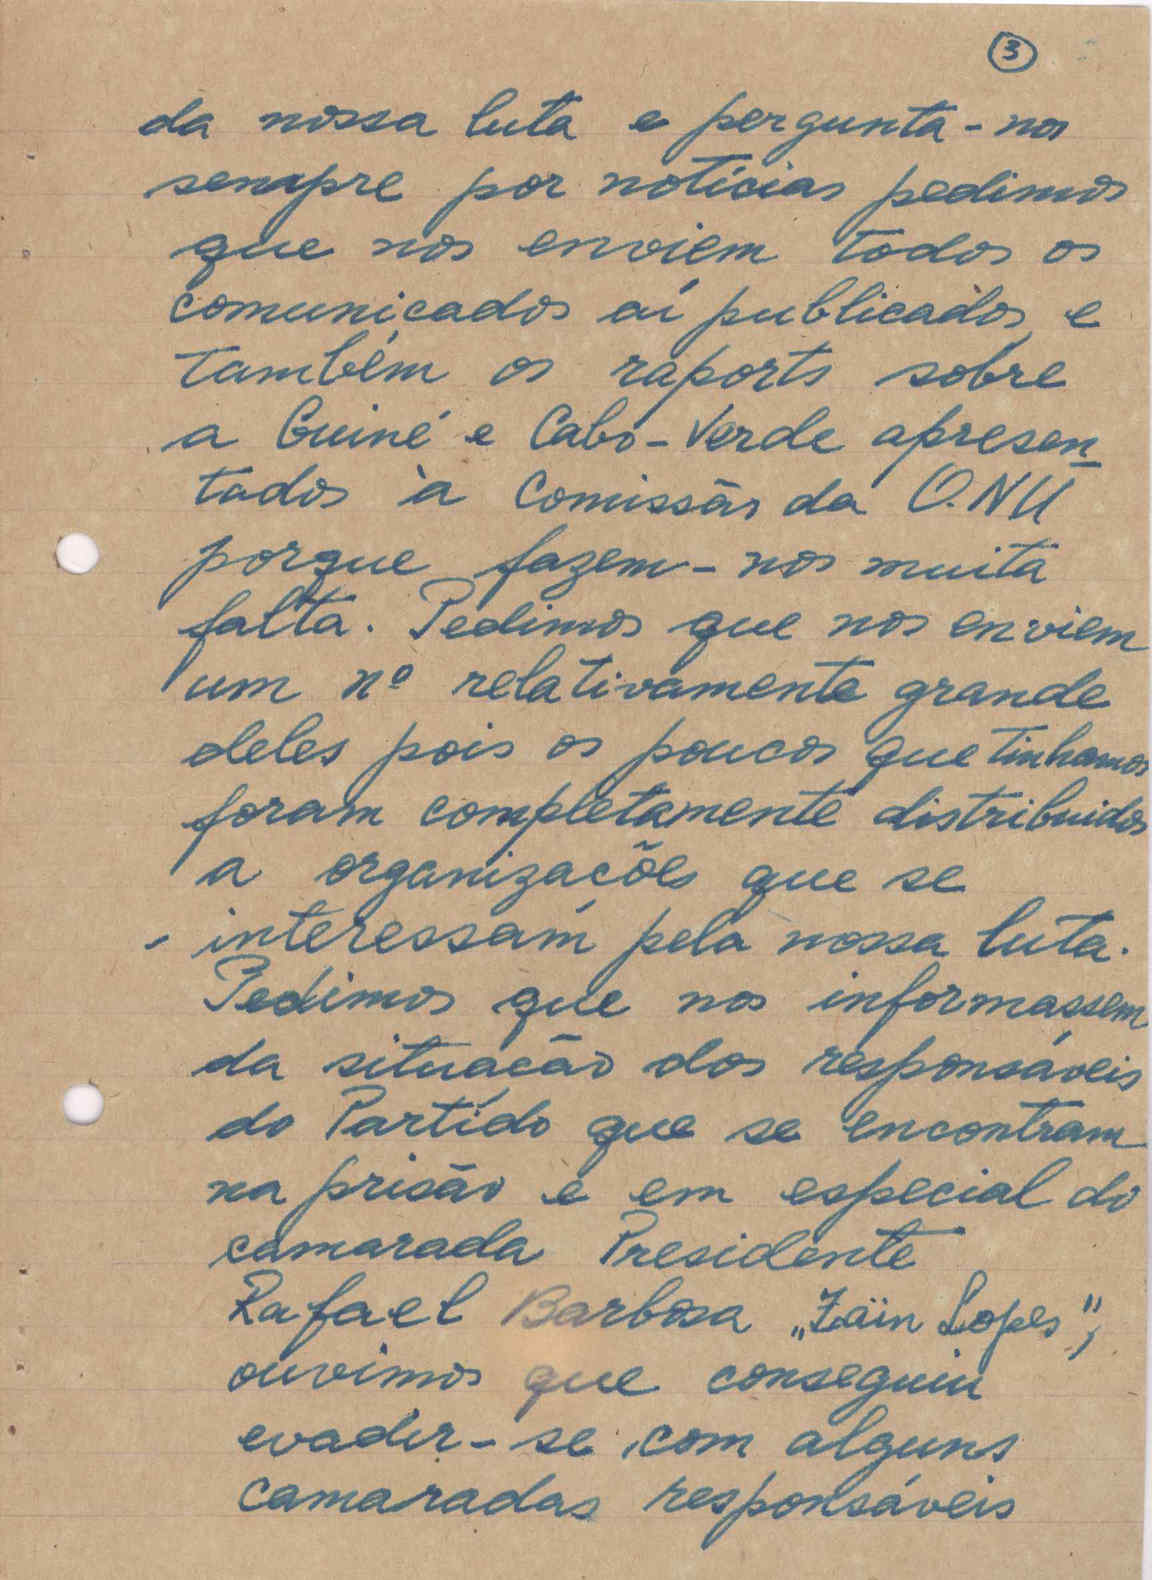 3
da nossa luta e pergunta-nos
sempre por notícias pedimos
que nos enviem todos os
comunicados aí publicados, e
também os raports sobre
a Guiné e Cabo-Verde apresen
tados à Comissão da O.NU
porque fazem-nos muita
falta. Pedimos que nos enviem
um nº relativamente grande
deles pois os poucos que tinhamos
foram completamente distribuidos
a organizacões que se
interessam pela nossa luta.
Pedimos que nos informassem
da situacão dos responsáveis
do Partido que se encontram
na prisão e em especial do
camarada Presidente
Rafael Barbosa „Zäin Lopes",
ouvimos que conseguiu
evadir-se com alguns
camaradas responsáveis